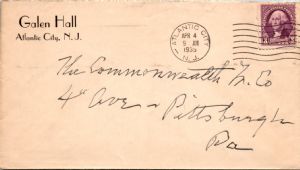 Galen Hall
Atlantic City, N. J.
ATLANTIC CITY
APR 4
9 AM
1935
N.J.
3
The Commonwealth T. Co
4th Ave
Pittsburgh
Pa